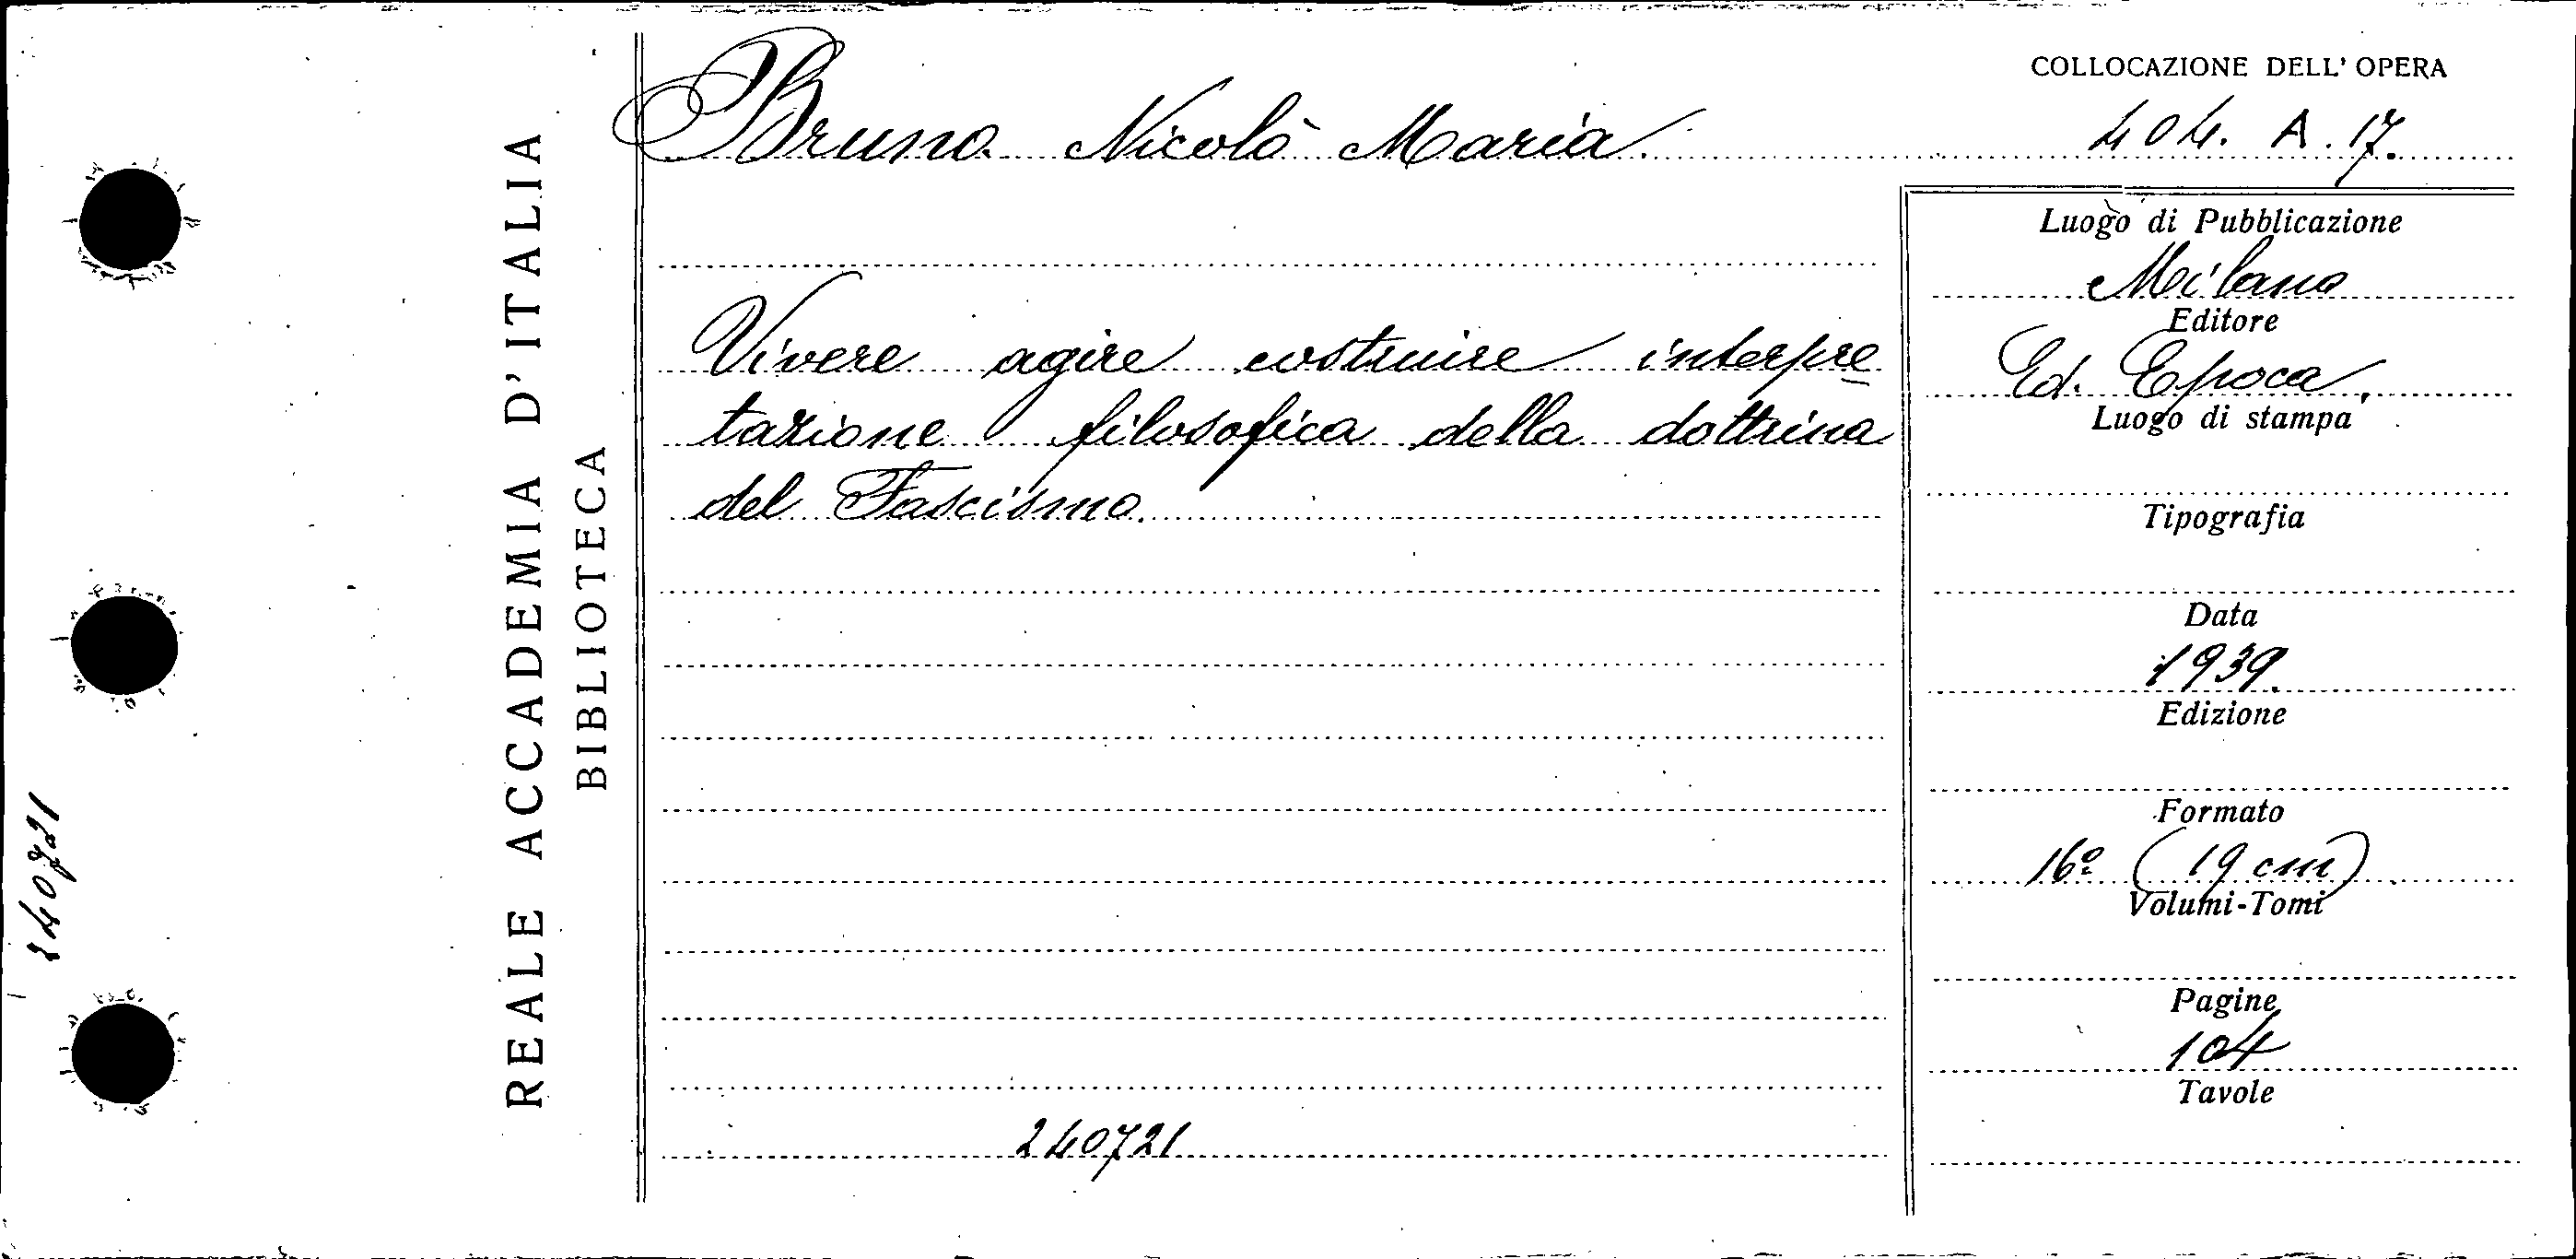 240721
REALE ACCADEMIA D'ITALIA
BIBLIOTECA
Bruno Nicolò Maria
Vivere agire costruire interpre
tazione filosofica della dottrina
del Fascismo.
240721
COLLOCAZIONE DELL'OPERA
404. A. 17.
Luogo di Pubblicazione
Milano
Editore
Ed. Epoca,
Luogo di stampa
Tipografia
Data
1939.
Edizione
Formato
16º (19 cm)
Volumi-Tomi
Pagine
104
Tavole